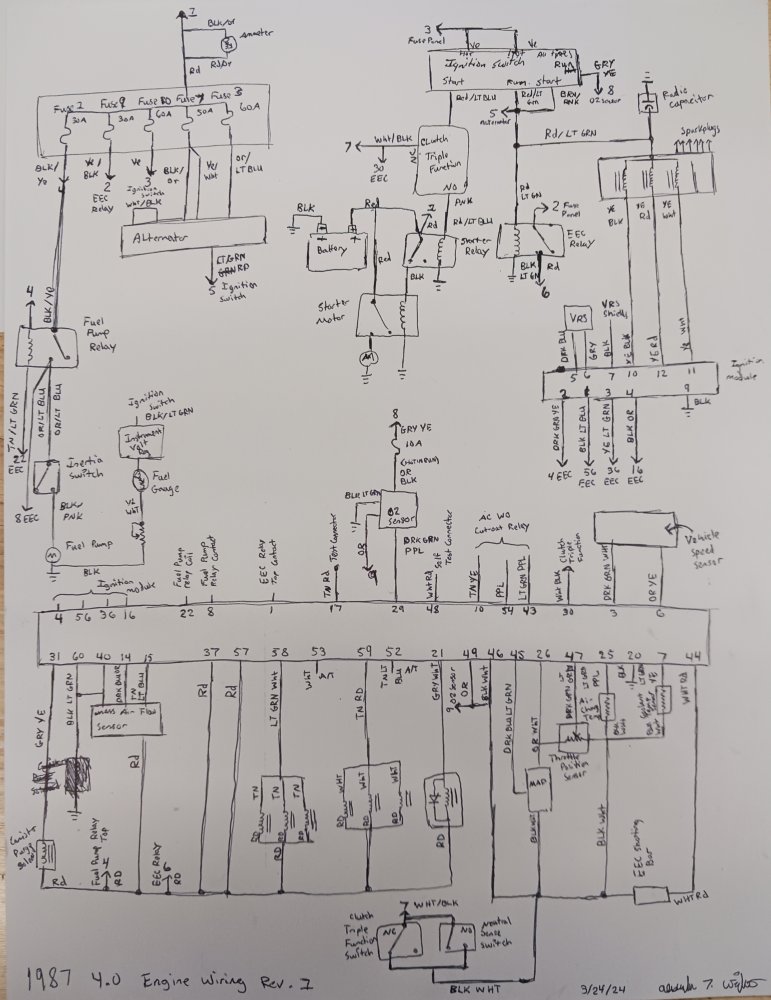 1
BLK/or
Ammeter
RD/or
Rd
Fuse 1
Fuse 9
Fuse 10
Fuse 7
Fuse 3
30A
30A
60A
50A
60A
BLK/
Yo
Ye/
BLK
2
EEC
Relay
Ye
3
Ignition
Switch
Wht/BLK
BLK/
or
Ye/
Wht
or/
LT BLU
Alternator
LT GRN
RD
5 Ignition
Switch
3
Fuse Panel
Ye
Ye
Ignition Switch
Start
Run
Start
GRY
YE
8
O2 Sensor
Red/LT BLU
Red/LT
Grn
BRN/
PNK
5
Alternator
Radio
Capacitor
Rd/LT GRN
Sparkplugs
7
Wht/BLK
30
EEC
NC
Clutch
Triple
Function
NO
PNK
Rd/LT BLU
BLK
Red
1
Rd
Battery
Red
Starter
Relay
BLK
Starter
Motor
M
Rd
LT GRN
2 Fuse
Panel
EEC
Relay
BLK
LT GRN
Rd
6
YE
BLK
YE
Rd
YE
Wht
4
BLK/YE
Fuel
Pump
Relay
TN/LT GRN
OR/LT BLU
OR/LT BLU
EEC
8 EEC
Inertia
Switch
BLK/
PNK
Fuel Pump
BLK
Ignition
Switch
BLK/LT GRN
Instrument
Volt
Fuel
Gauge
VRS
VRS
Shields
DRK BLU
GRY
BLK
YE BLK
YE Rd
Ye Wht
Ignition
Module
5 6 7 10 12 11
2 3 4 9
BLK
DRK GRN YE
BLK LT BLU
YE LT GRN
BLK OR
4 EEC
56
EEC
36
EEC
16
EEC
8
GRY YE
10A
OR
BLK
BLK LT GRN
O2
Sensor
OR
DRK GRN
PPL
Ignition module
4 56 36 16
Fuel Pump
relay Coil
22
Fuel Pump
Relay Contact
8
EEC Relay
Top Contact
1
TN RD
Test Connector
17
29
Wht Rd
Self
Test Connector
48
AC WO
Cut-out Relay
TN YE
PPL
LT GRN PPL
10 54 43
Wht BLK
Clutch
Triple
Function
30
DRK GRN WHT
3
OR YE
6
Vehicle
Speed
Sensor
31 60 40 14 15 37 57 58 53 59 52 21 49 46 45 26 47 25 20 7 44
GRY YE
BLK LT GRN
DRK BLU OR
TN
LT BLU
Mass Air Flow
Sensor
Rd
Rd
Rd
LT GRN WHT
WHT
A/T
TN RD
TN LT
BLU A/T
GRY WHT
O2 Sensor
9
OR
BLK WHT
DRK BLU LT GRN
OR WHT
DRK GRN LT GRN
PPL
BLK
YE
WHT RD
Canister
Purge
Solenoid
Rd
Fuel Pump Relay
Top
4
RD
EEC Relay
6
RD
TN
TN
TN
RD
RD
RD
RD
WHT
WHT
WHT
RD
RD
RD
RD
MAP
Throttle
Position
Sensor
BLK
Wht
BLK
Wht
BLK WHT
BLK WHT
EEC Shorting
Bar
WHT Rd
Clutch
Triple
Function
Switch
7 WHT/BLK
NC
NO
Neutral
Sense
Switch
BLK WHT
1987 4.0 Engine Wiring Rev. 1
3/24/24